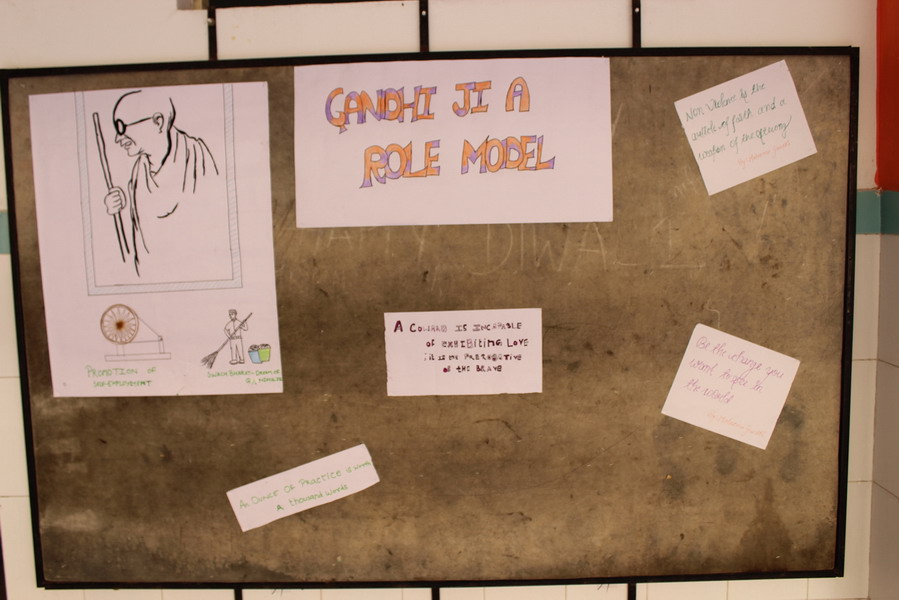 GANDHI JI A
ROLE MODEL
Non Violence is the
article of faith and a
weapon of the
by Mahatma Gandhi
HAPPY DIWALI
A COWARD IS INCAPABLE
OF EXHIBITING LOVE
IT IS THE PREROGATIVE
OF THE BRAVE
Be the change you
want to see in
the world
by Mahatma Gandhi
PROMOTION OF
SELF-EMPLOYMENT
SWACH BHARAT: DREAM OF
An Ounce Of Practice is worth
A thousand Words